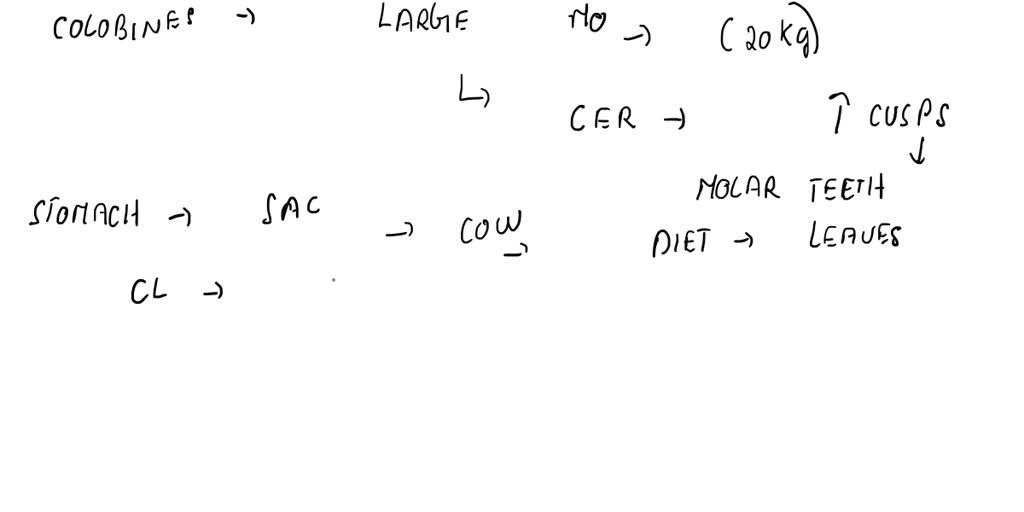 COLOBINES → LARGE MO → (20 kg)
↳ CER → ↑ CUSPS
↓
MOLAR TEETH
STOMACH → SAC → COW → DIET → LEAVES
CL →